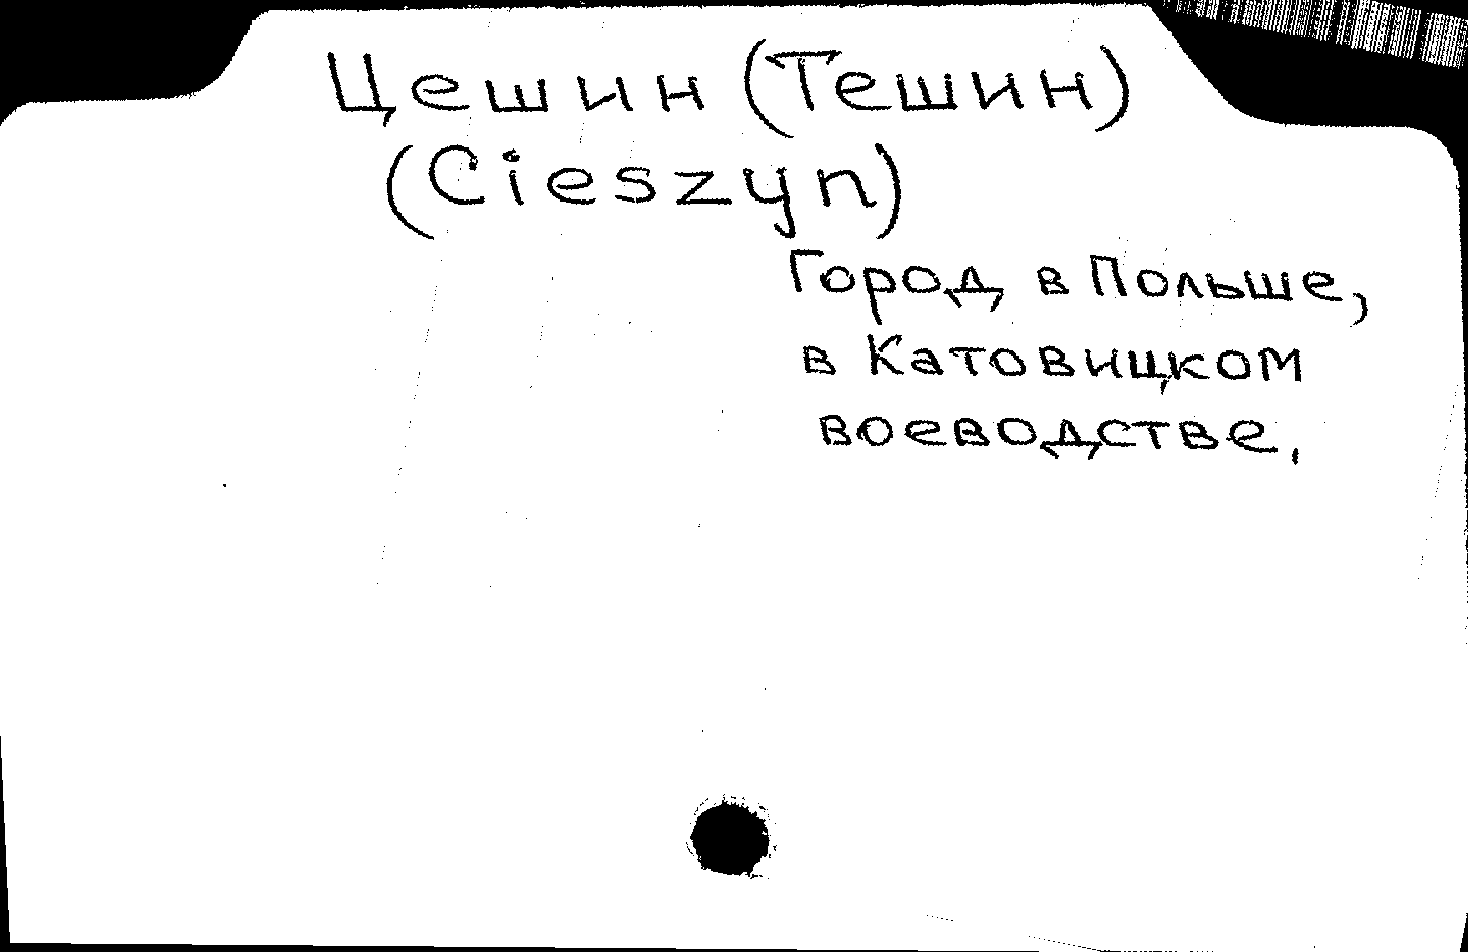 Цешин (Тешин)
(Cieszyn)
Город в Польше,
в Катовицком
воеводстве,